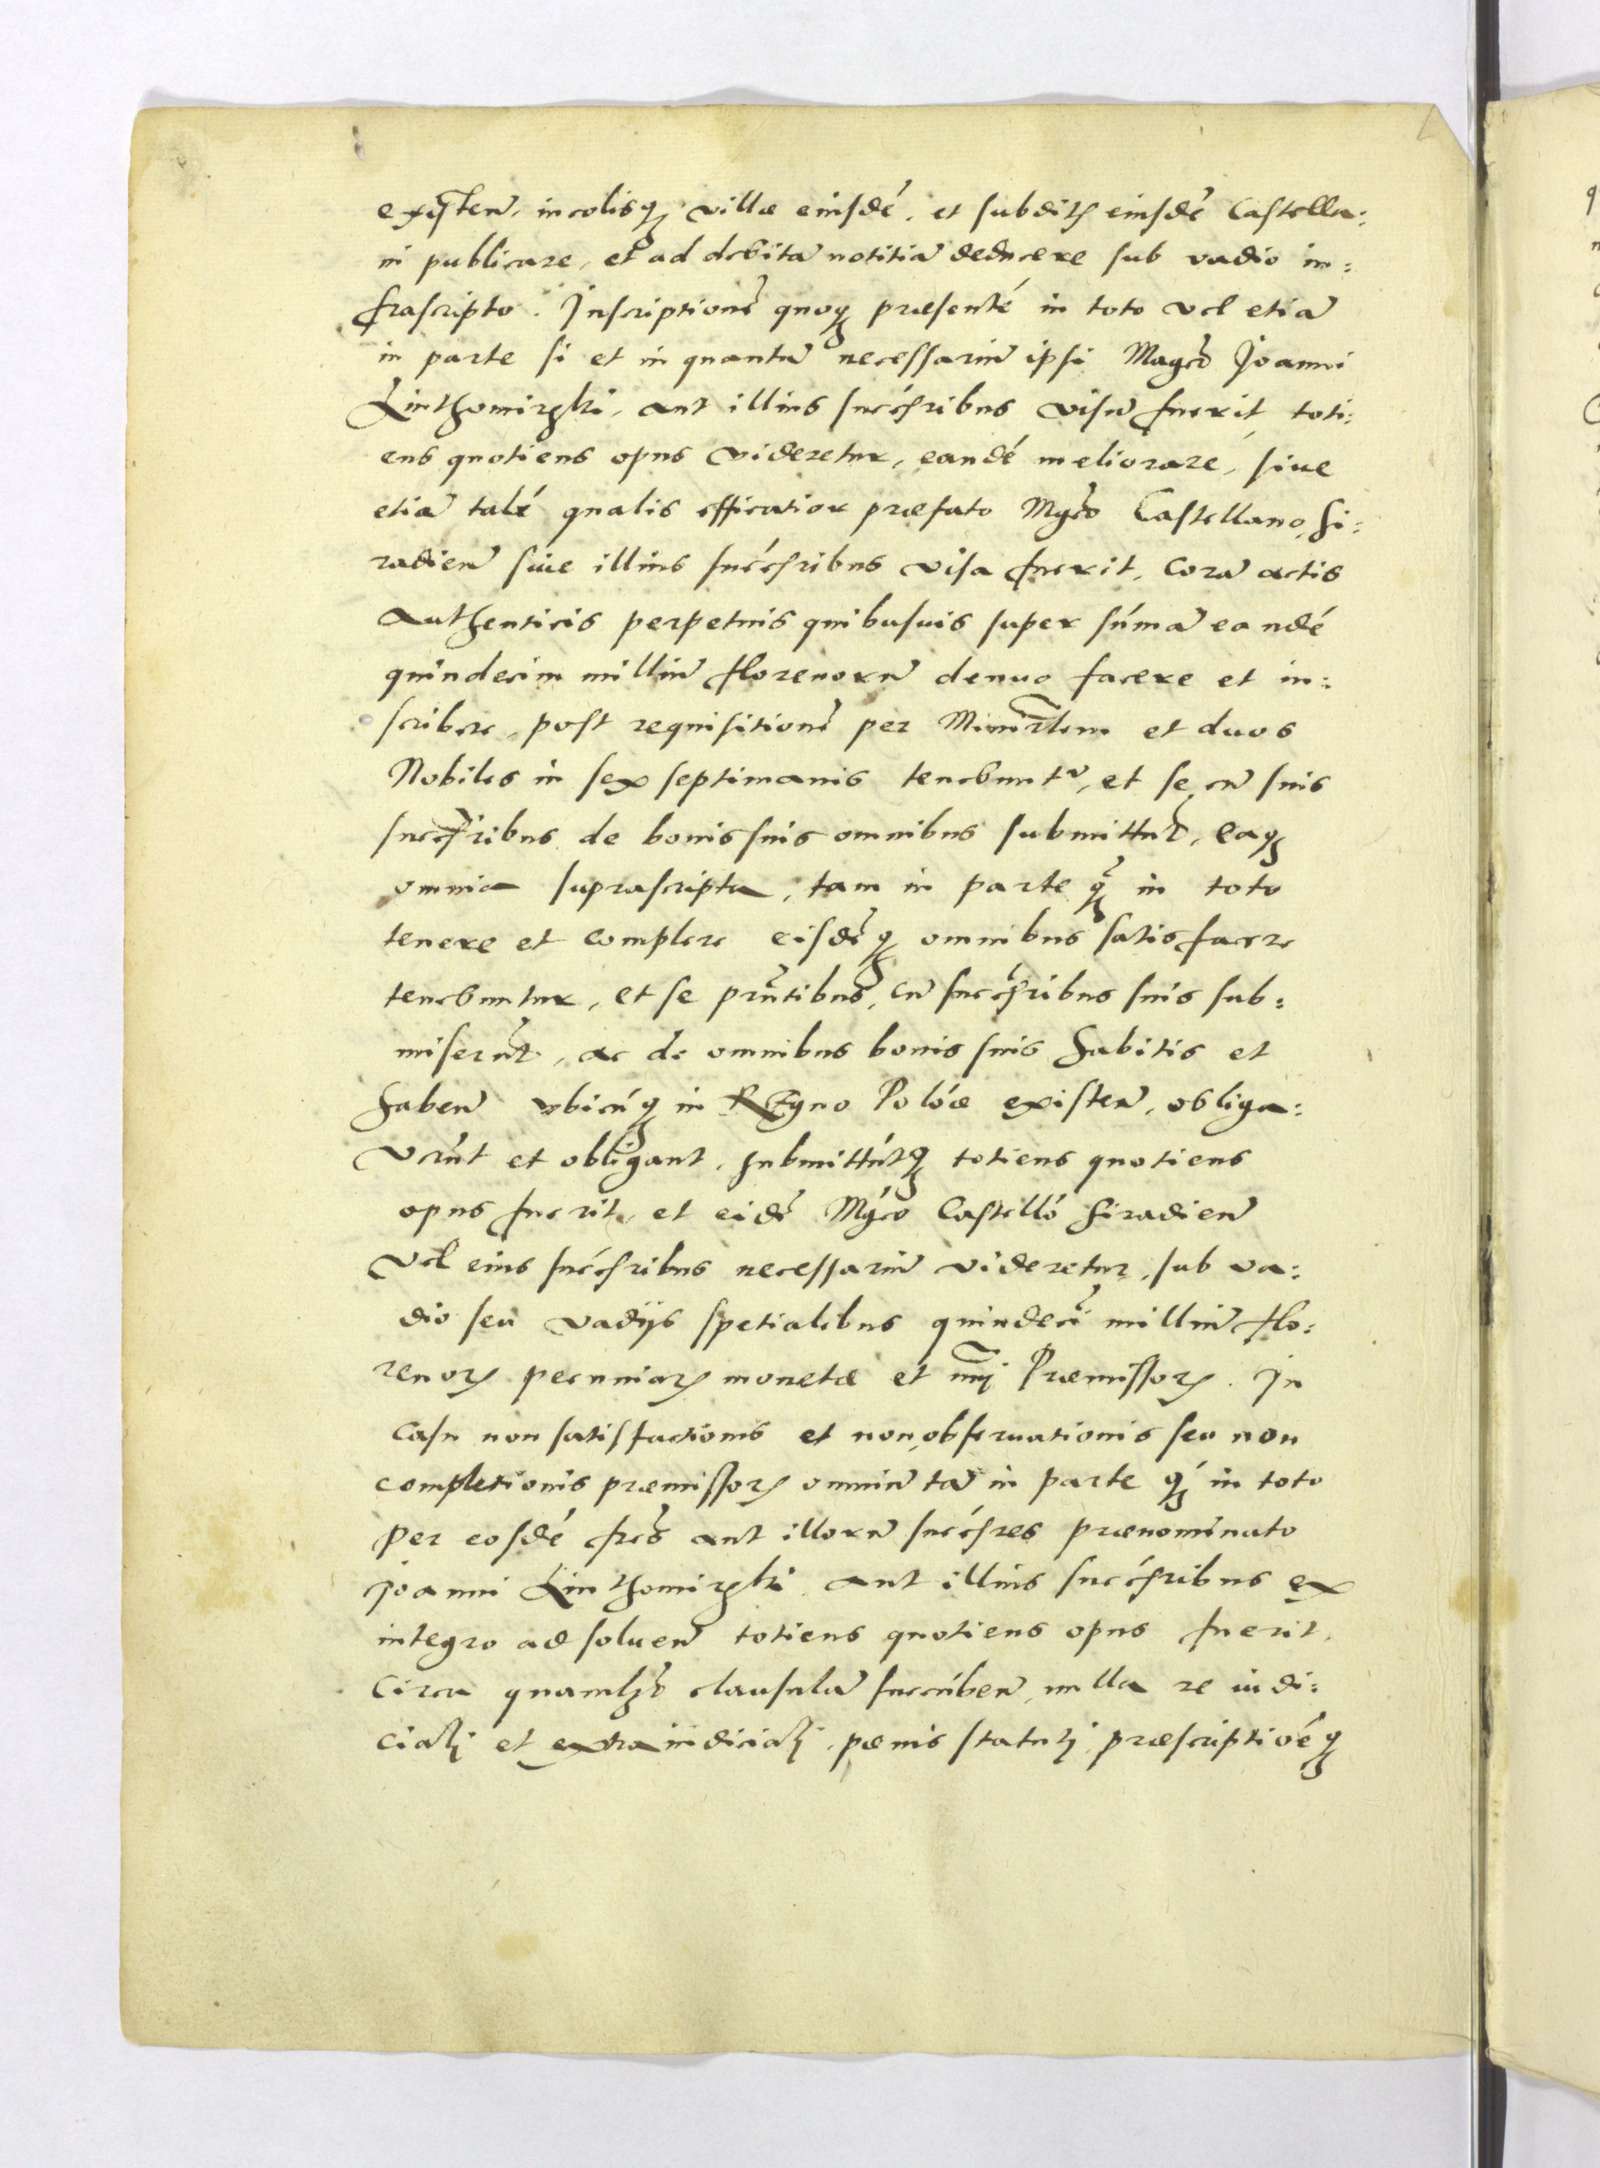 existeñ, incolisq villæ eiusdé, et subditis eiusdé Castella:
ni publicare, et ad debitã notitiã deducere sub vadio in:
frascripto. Inscriptioné quoq præsenté in toto vel etiã
in parte si et in quantũ necessariũ ipsi Magco Joanni
Linthomirski, aut illius succésribus visũ fuerit, toti:
ens quotiens opus videretur, eandé meliorare, siue
etiã talé qualis efficatior præfato Mgco Castellano Si:
radieñ siue illius succésribus visa fuerit, corã actis
authenticis perpetuis quibusuis super súmã eandé
quindecim milliũ florenorũ denuo facere et in:
scribere, post requisitioné per Ministlem et duos
Nobiles in sex septimanis tenebuntr, et se cũ suis
succésribus de bonis suis omnibus submittũt, eaq
omnia suprascripta, tam in parte q̃ in toto
tenere et complere eisdéq omnibus satisfacere
tenebuntur, et se prñtibus, cũ succésribus suis sub:
miserũt, ac de omnibus bonis suis habitis et
habeñ vbicúq in Regno Polóæ existeñ, obliga:
verũt et obligant, submittútq totiens quotiens
opus fuerit, et eidé Mgco Castelló Siradieñ
vel eius succésribus necessariũ videretur, sub va:
dio seu vadijs spetialibus quindecĩ milliũ flo:
renorz pecuniarz monetæ et nũi Præmissorz. In
casu non satisfactionis et non obseruationis seu non
completionis præmissorz omniũ tã in parte q́ in toto
per eosdé fres aut illorũ succésres prænominato
Joanni Linthomirski aut illius succésribus ex
integro ad solueñ totiens quotiens opus fuerit,
Circa quamlzt clausulã succúbeñ, nulla re iudi:
ciali et extraiudiciali, pænis statuti, præscriptióéq